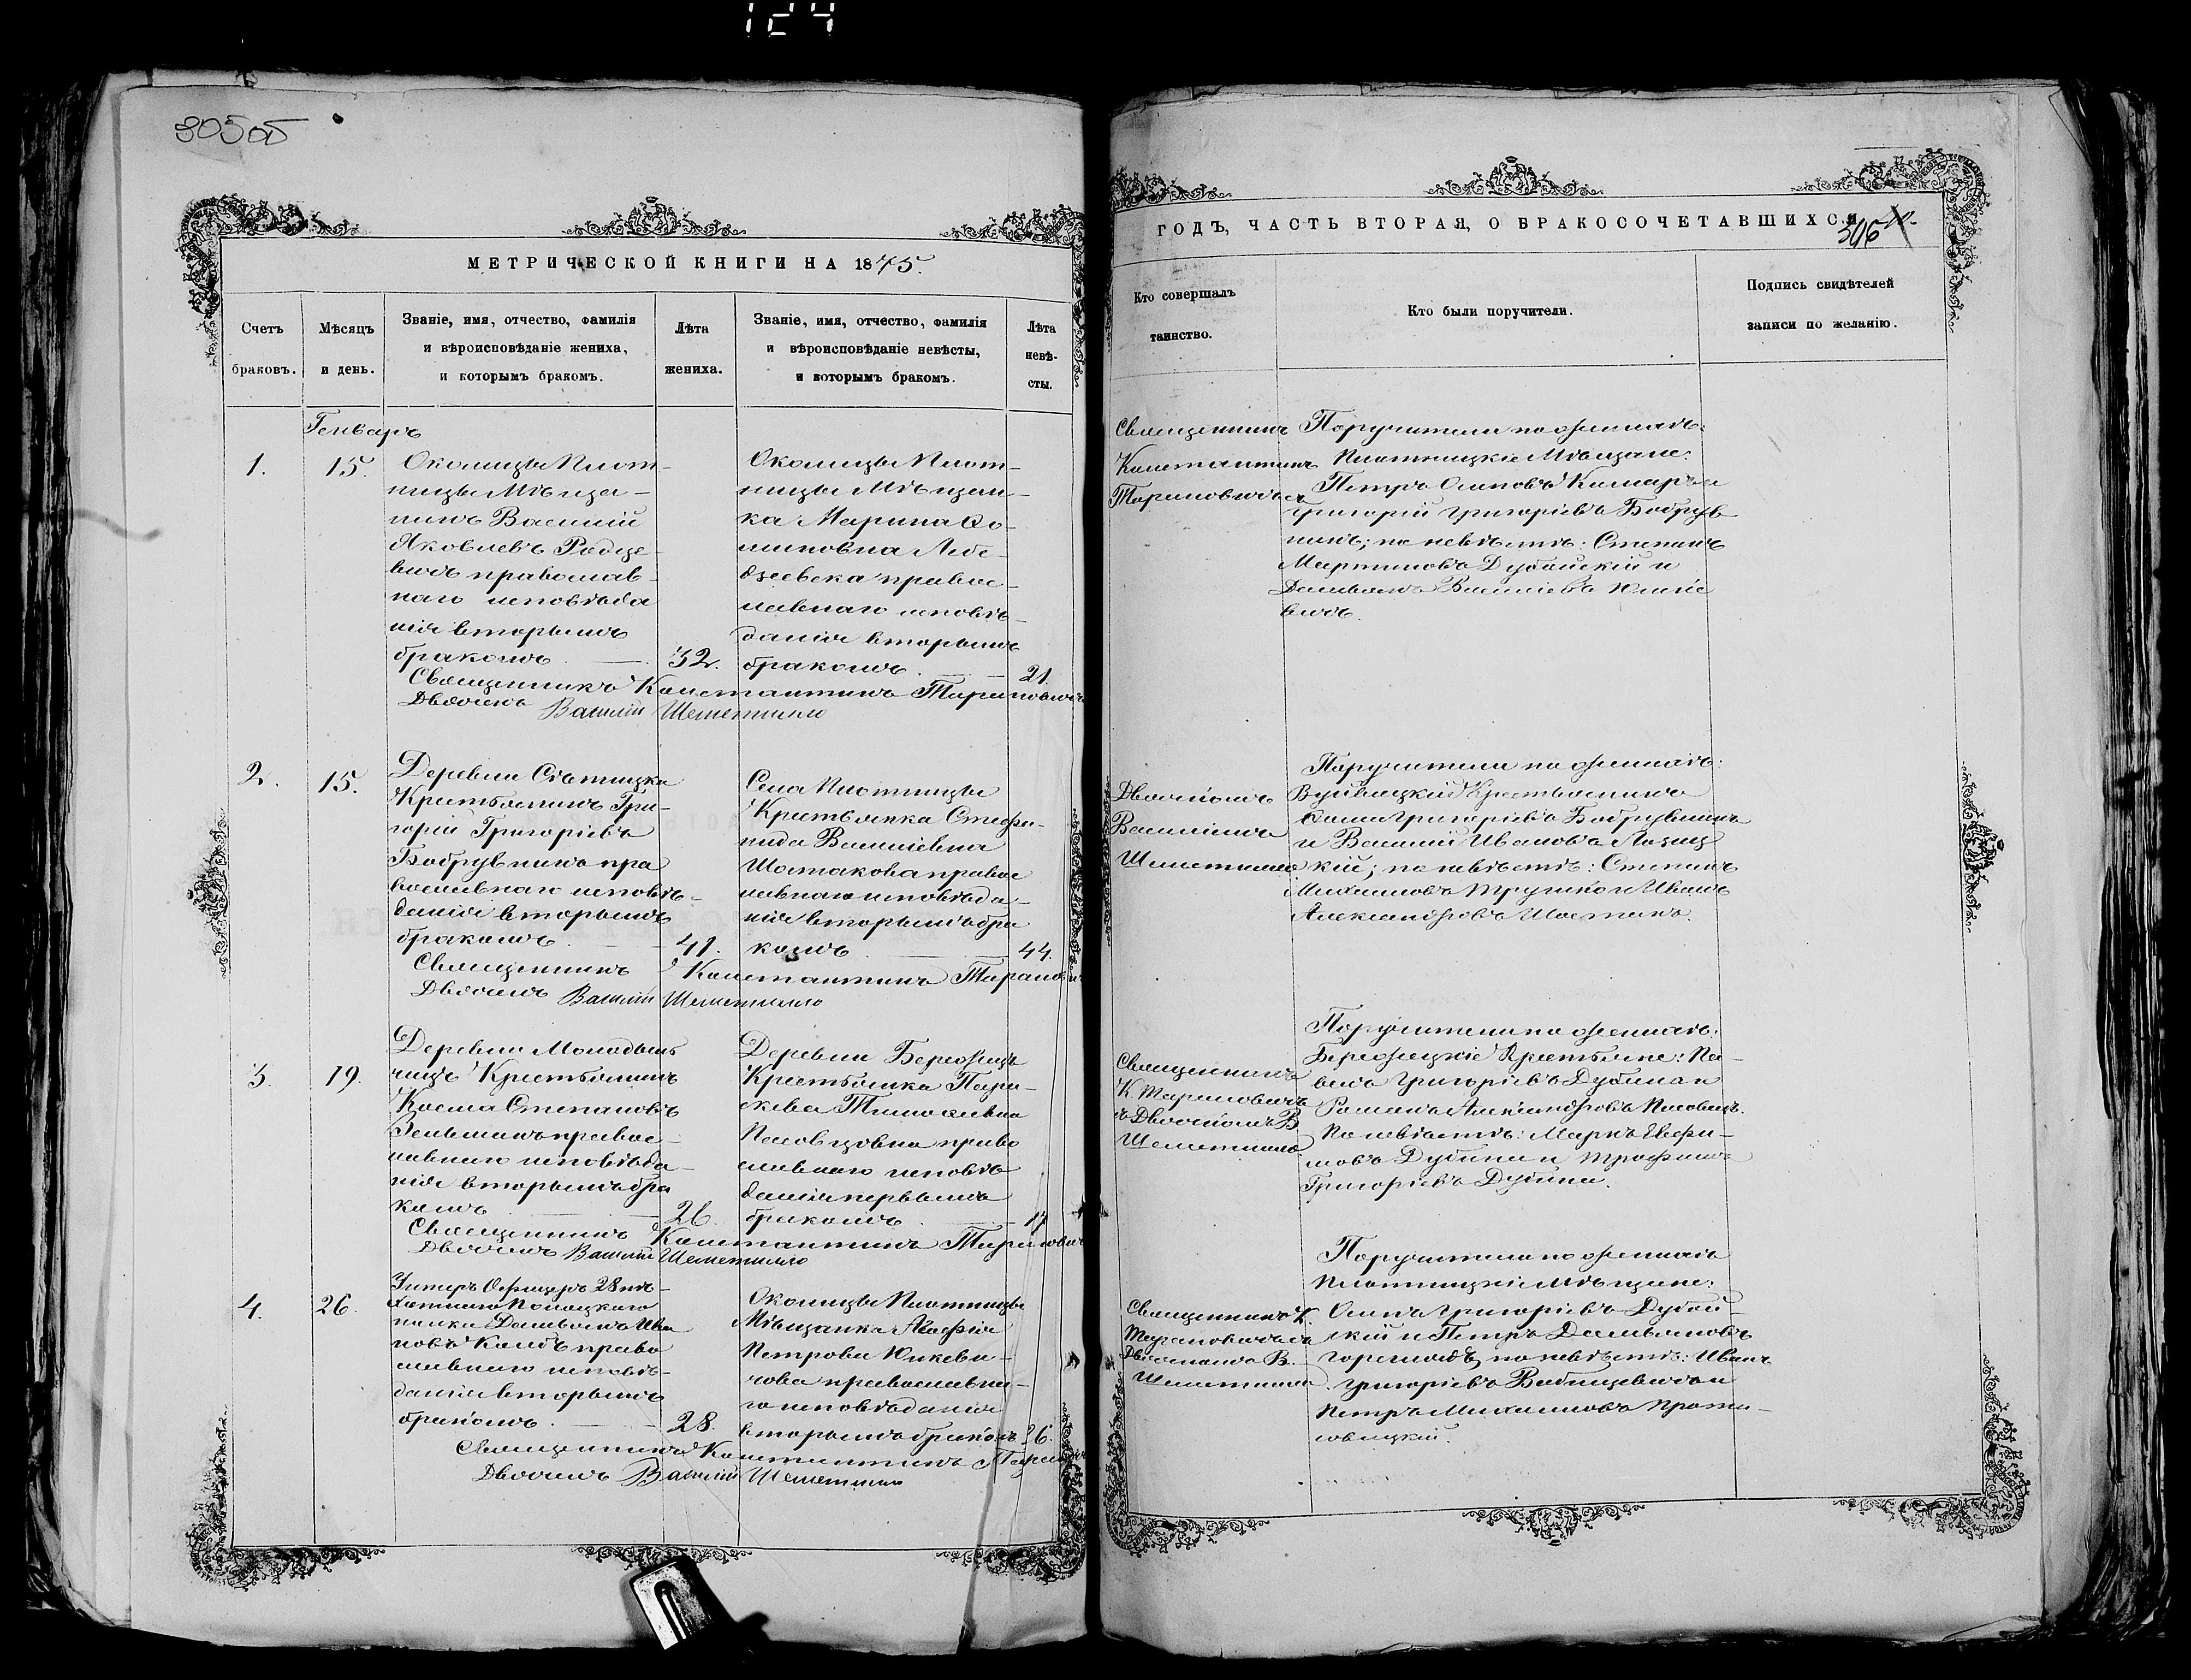 124
305об
МЕТРИЧЕСКОЙ КНИГИ НА 1875.
Счетъ браковъ.
Мѣсяцъ и день.
Званіе, имя, отчество, фамилія
и вѣроисповѣданіе жениха,
и которымъ бракомъ.
Лѣта жениха.
Званіе, имя, отчество, фамилія
и вѣроисповѣданіе невѣсты,
и которымъ бракомъ.
Лѣта невѣ-
сты.
Генварь
1.
15.
Околицы Плот-
ницы Мѣща-
нинъ Василій
Яковлевъ Родце-
вичъ православ-
наго исповѣда
нія вторымъ
бракомъ
32.
Околицы Плот-
ницы Мѣщан-
ка Марина
Лебе-
дзевска правос-
лавнаго исповѣ-
данія вторымъ
бракомъ
21.
Священникъ Константинъ Тарановичъ
Дьячекъ Василій Шеметилло
2.
15.
Деревни Сѣтицка
Крестьянинъ Гри-
горій Григорьевъ
Бобруйникъ пра
вославнаго исповѣ-
данія вторымъ
бракомъ
41.
Села Плотницы
Крестьянка Стефа-
нида Василіевна
Шостакова правос
лавнаго исповѣда-
нія вторымъ бра
комъ
44.
Священникъ Константинъ Таранов
Дьячекъ Василій Шеметилло
3.
19.
Деревни Молодель
чицъ Крестьянинъ
Косма Степановъ
Зельманъ правос-
лавнаго исповѣда-
нія вторымъ бра
комъ
26.
Деревни Бережцы
Крестьянка Пара-
скева Тимоѳеевна
православнаго исповѣ
данія первымъ
бракомъ
17
Священникъ Константинъ Тарановичъ
Дьячекъ Василій Шеметилло
4.
26.
Унтеръ Офицеръ 28 пѣ-
хотнаго Полоцкаго
полка Демьянъ Ива
новъ право
славнаго исповѣ-
данія вторымъ
бракомъ
28.
Околицы Плотницы
Мѣщанка Агафія
Петрова Юшкеви-
чова православна-
го исповѣданія
вторымъ бракомъ
26.
Священникъ Константинъ Таранов
Дьячекъ Василій Шеметилло
ГОДЪ, ЧАСТЬ ВТОРАЯ, О БРАКОСОЧЕТАВШИХСЯ
306
Кто совершалъ
таинство.
Кто были поручители.
Подпись свидѣтелей
записи по желанію.
Священникъ
Константинъ
Тарановичъ
Поручители по женихѣ:
Плотницкіе Мѣщане:
Петръ Осиповъ Комаръ и
Григорій Григорьевъ Бобруй
никъ; по невѣстѣ: Степанъ
Мартиновъ Дубойскій и
Демьянъ Василіевъ Юшке
вичъ.
Дьячкомъ
Василіемъ
Шеметилло
Поручители по женихѣ:
Крестьянинъ
Григорьевъ Бобруйникъ
и Василій Ивановъ Лозиц
кій; по невѣстѣ: Степанъ
Михаиловъ и Иванъ
Александровъ Шостакъ.
Священникъ
К. Тарановичъ
съ Дьячкомъ В.
Шеметилло
Поручители по женихѣ:
Бережецкіе Крестьяне: Па-
велъ Григорьевъ Дубина и
Романъ Александровъ
По невѣстѣ: Маркъ Евфи-
мовъ Дубина и Трофимъ
Григорьевъ Дубина.
Священникъ К.
Тарановичъ съ
Дьячкомъ В.
Шеметилло
Поручители по женихѣ
Плотницкіе Мѣщане:
Осипъ Григорьевъ Дубой-
скій и Петръ Демьяновъ
по невѣстѣ: Иванъ
Григорьевъ и
Петръ Михаиловъ Прота-
совицкій.